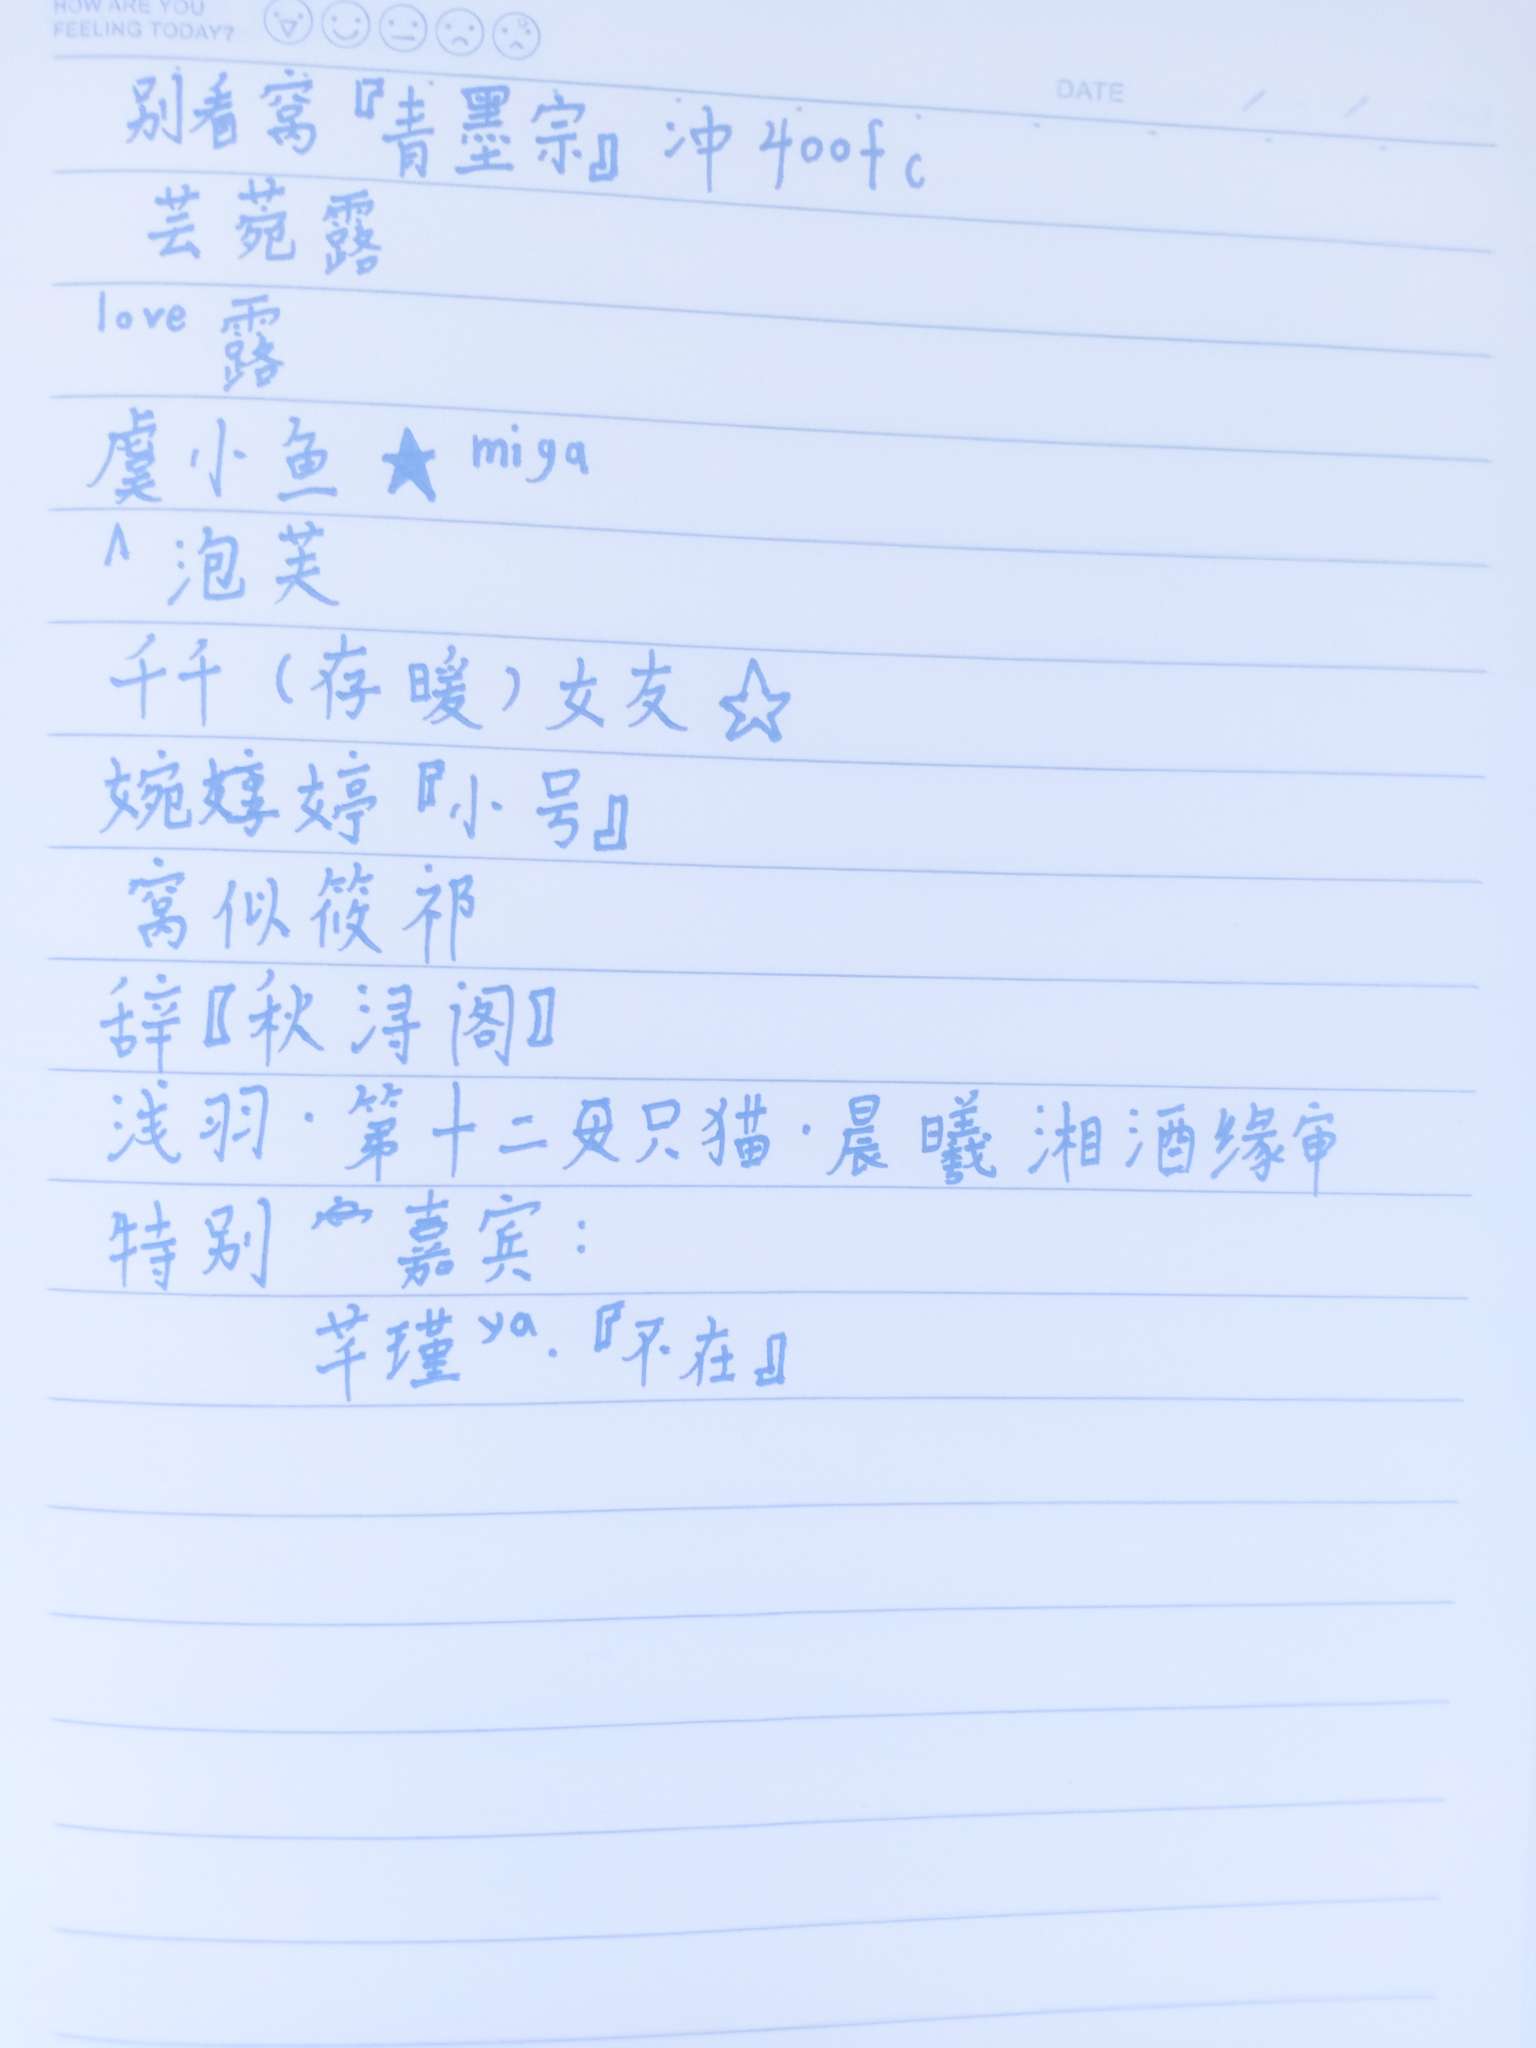 HOW ARE YOU
FEELING TODAY?
DATE / /
别看窝『青墨宗』冲400fc
芸菀露
love 露
虞小鱼★miga
^泡芙
千千(存暖)女友☆
婉婷『小号』
窝似筱祁
辞〖秋浔阁〗
浅羽·第十二只猫·晨曦湘酒缘审
特别嘉宾:
芊瑾ya.『不在』